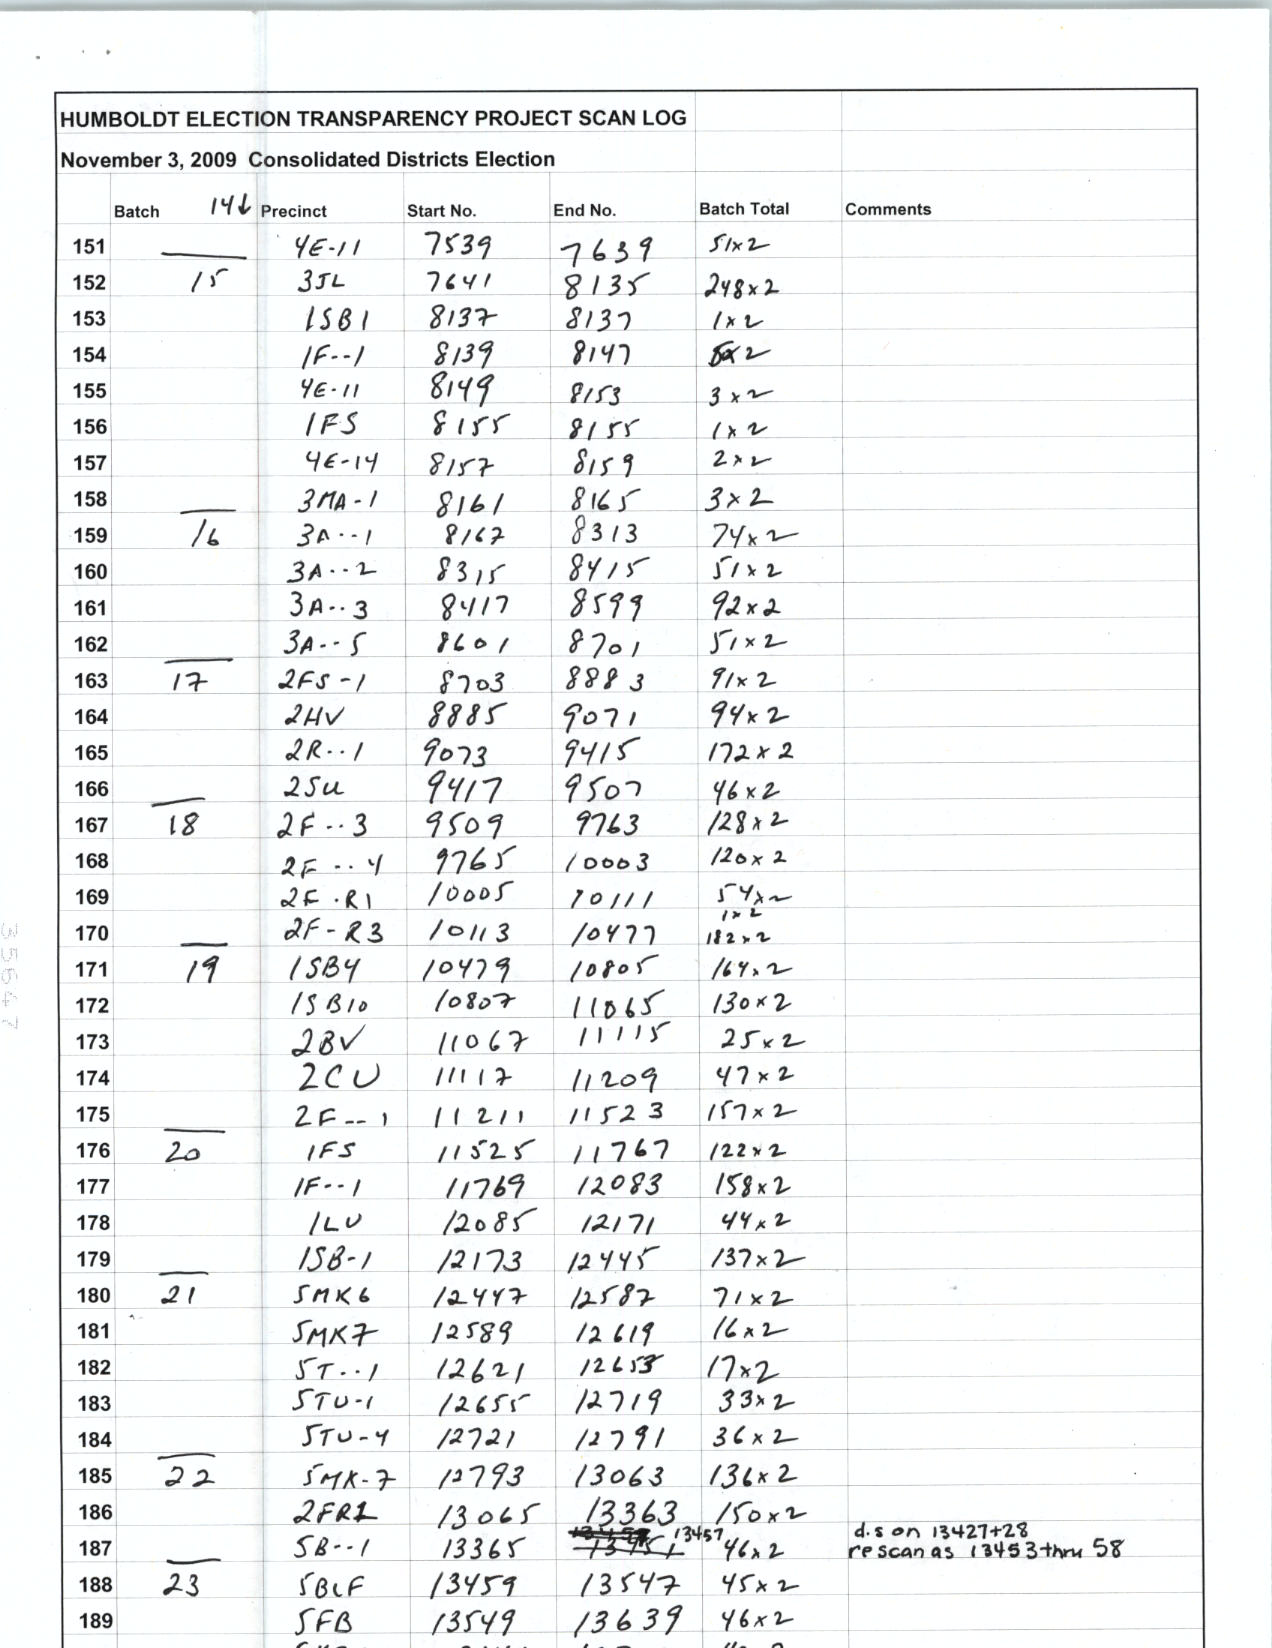 HUMBOLDT ELECTION TRANSPARENCY PROJECT SCAN LOG
November 3, 2009 Consolidated Districts Election
Batch 14↓ Precinct Start No. End No. Batch Total Comments
151 4E-11 7539 7639 51x2
152 15 3JL 7641 8135 248x2
153 1SB1 8137 8137 1x2
154 1F--1 8139 8147 5x2
155 4E-11 8149 8153 3x2
156 1FS 8155 8155 1x2
157 4E-14 8157 8159 2x2
158 3MA-1 8161 8165 3x2
159 16 3A--1 8167 8313 74x2
160 3A--2 8315 8415 51x2
161 3A--3 8417 8599 92x2
162 3A--5 8601 8701 51x2
163 17 2FS-1 8703 8883 91x2
164 2HV 8885 9071 94x2
165 2R--1 9073 9415 172x2
166 2SU 9417 9507 46x2
167 18 2F--3 9509 9763 128x2
168 2F--4 9765 10003 120x2
169 2F-R1 10005 10111 54x2
1x2
170 2F-R3 10113 10477 182x2
171 19 1SB4 10479 10805 164x2
172 1SB10 10807 11065 130x2
173 2BV 11067 11115 25x2
174 2CU 11117 11209 47x2
175 2F--1 11211 11523 157x2
176 20 1FS 11525 11767 122x2
177 1F--1 11769 12083 158x2
178 1LU 12085 12171 44x2
179 1SB-1 12173 12445 137x2
180 21 5MK6 12447 12587 71x2
181 5MK7 12589 12619 16x2
182 5T--1 12621 12653 17x2
183 5TU-1 12655 12719 33x2
184 5TU-4 12721 12791 36x2
185 22 5MK-7 12793 13063 136x2
186 2FR1 13065 13363 150x2
d.s on 13427+28
187 5B--1 13365 13451 13457 46x2 rescan as 13453 thru 58
188 23 5BLF 13459 13547 45x2
189 5FB 13549 13639 46x2
35647